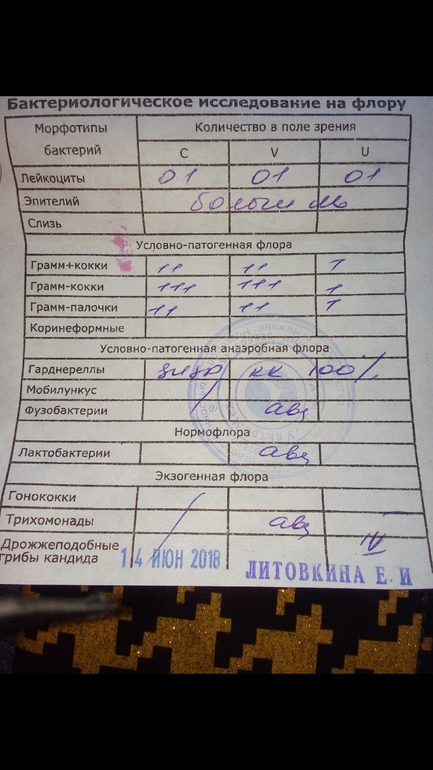 Бактериологическое исследование на флору
Морфотипы бактерий Количество в поле зрения
C V U
Лейкоциты 01 01 01
Эпителий
Слизь
Условно-патогенная флора
Грамм+кокки 11 11 1
Грамм-кокки 111 111 1
Грамм-палочки 11 11 1
Коринеформные
Условно-патогенная анаэробная флора
Гарднереллы 100%
Мобилункус
Фузобактерии авс
Нормофлора
Лактобактерии авс
Экзогенная флора
Гонококки
Трихомонады авс
Дрожжеподобные
грибы кандида IV
14 ИЮН 2018 ЛИТОВКИНА Е. И